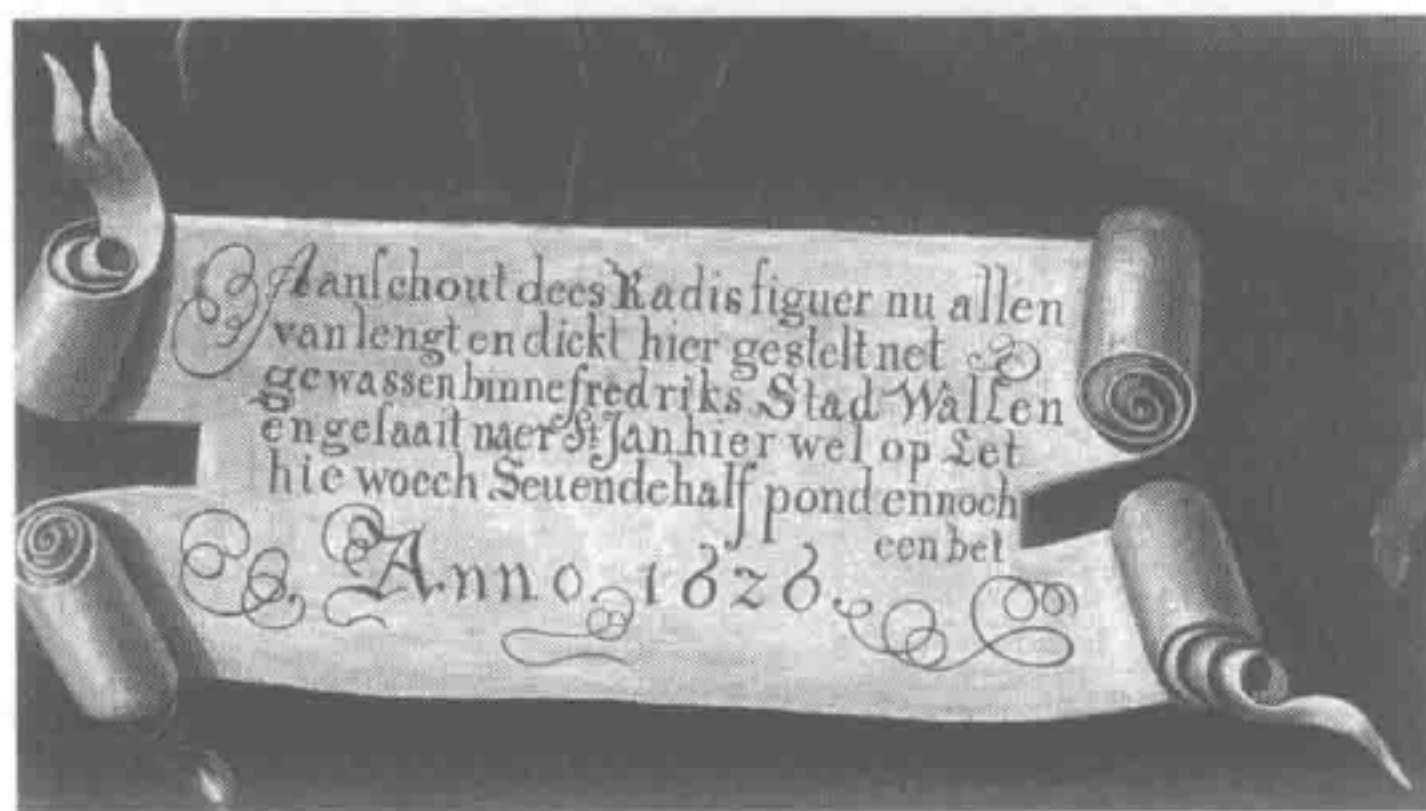 Aanſchout dees Radis figuer nu allen
van lengt en dickt hier gestelt net
gewassen binne fredriks Stad Wallen
en gesaait naer St Jan hier wel op Let
hie woech Seuendehalf pond en noch
een bet
Anno. 1626.